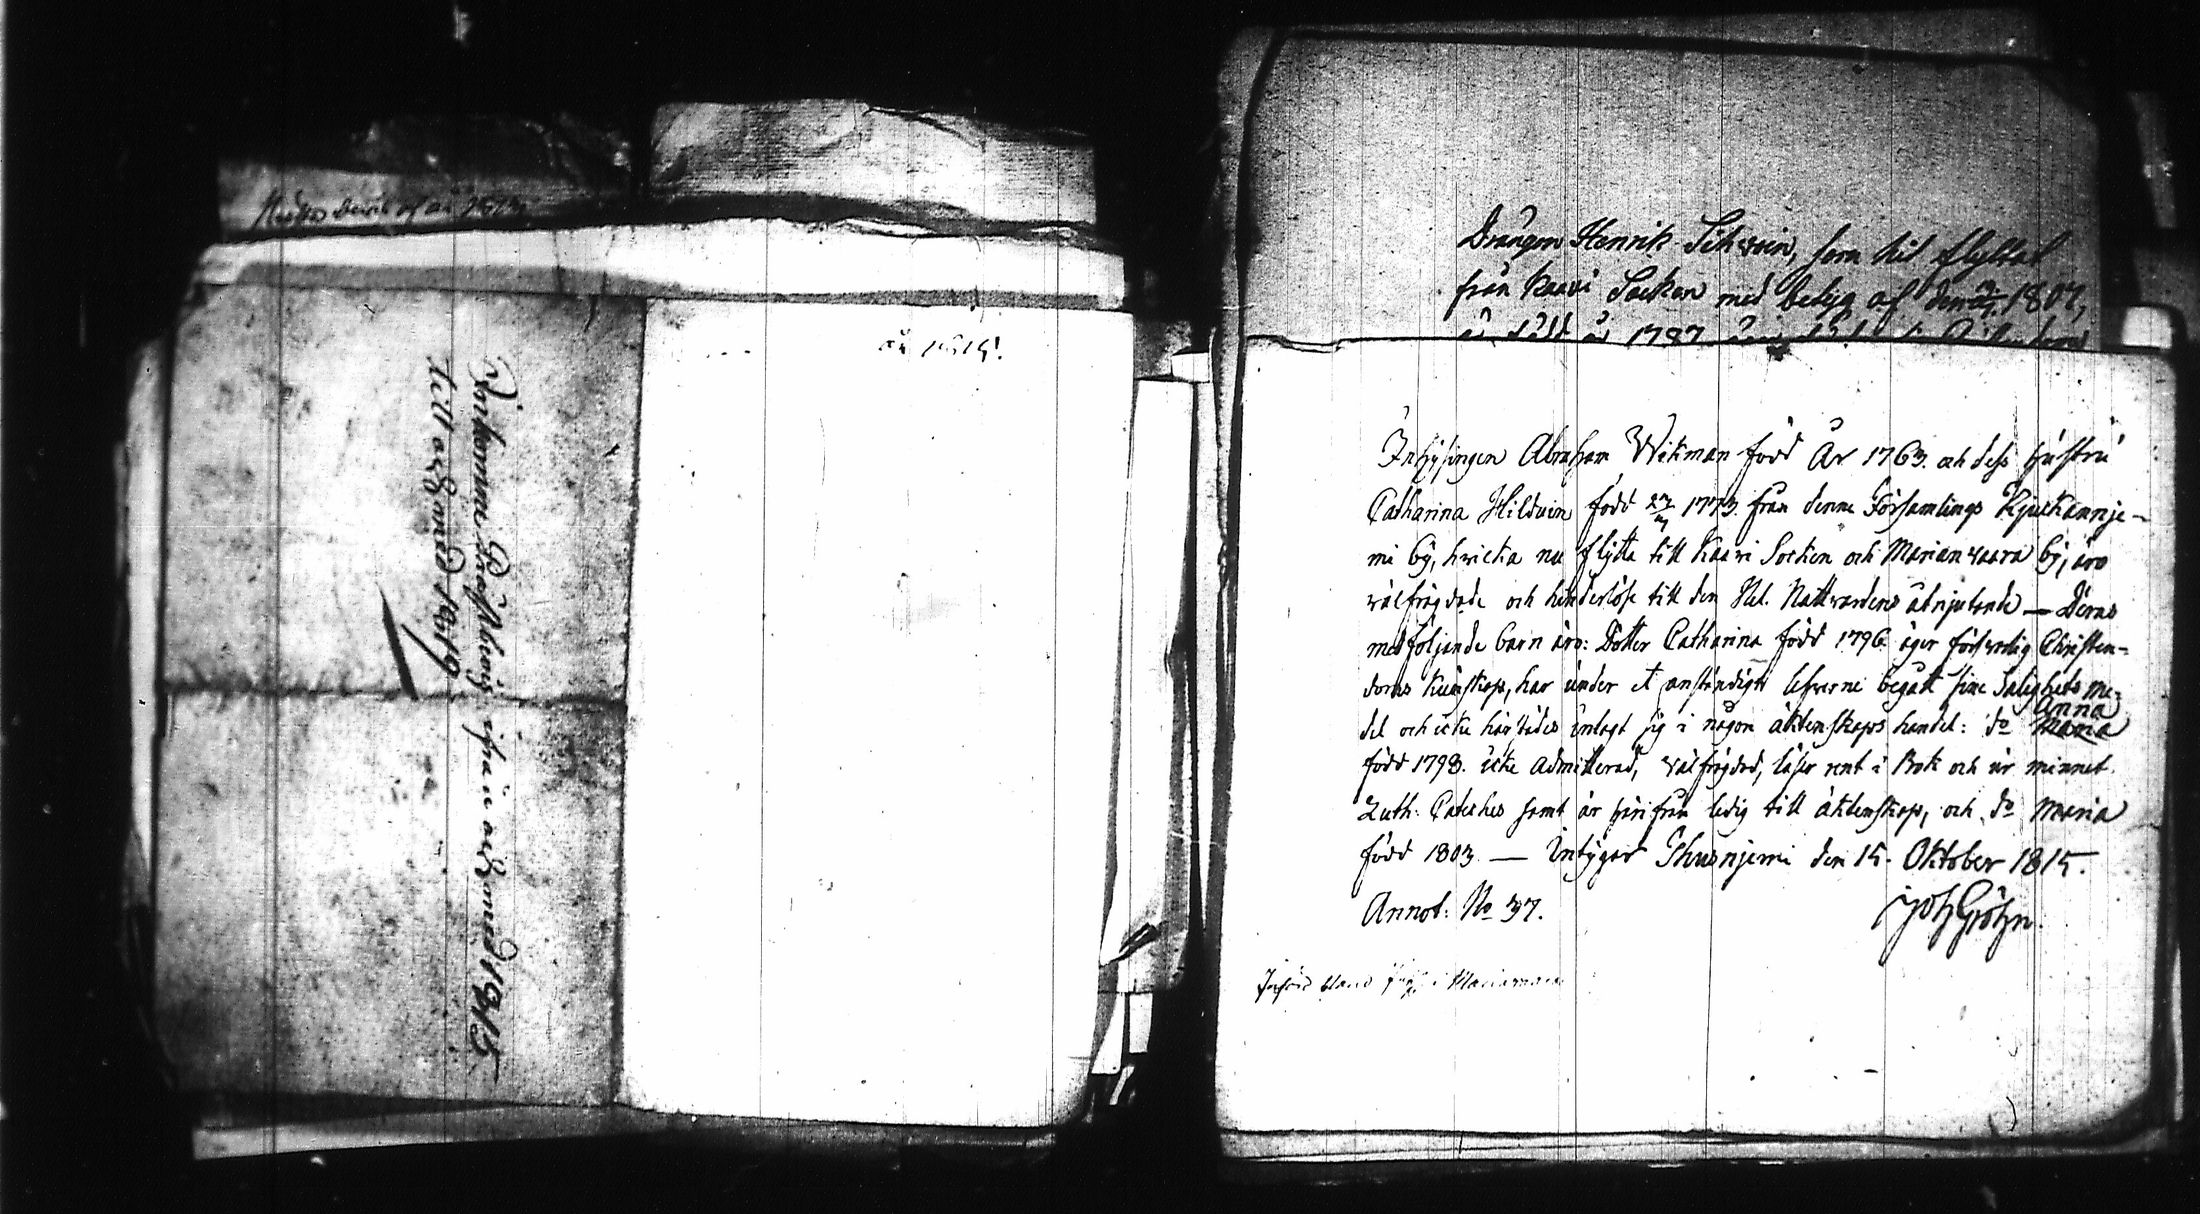 år 1815.
Inkomne Prästbevis ifrån och med 1815
till och med 1819
Drängen Henrik Schwein, som hit flyttat
från Kaavi Socken med betyg af den 1807,
år 1787
Inhysingen Abraham Wikman född År 1763. och dess hustru
Catharina Hilduin född 1773. från denne Församlings Kjukännje-
mi by, hvilka nu flytta till Kaavi Socken och Marianvaara by, äro
välfrägdade och hinderlöse till den Hel. Nattvardens åtnjutande — Deras
medföljande barn äro: Dotter Catharina född 1796. äger försvarlig Christen-
doms Kunskap, har under et anständigt lefverne begått sine Salighets me-
del och icke härstädes inlagt sig i någon äktenskaps handel: do Anna Maria
född 1798. icke admitterad, välfrägdad, läser rent i Bok och ur minnet
Luth. Cateches samt är härifrån ledig till äktenskap, och do Maria
född 1803. — Intygar Thusnjemi den 15. Oktober 1815.
Annot: No 37.
Joh Gröhn.
Införd bland i Marianvaara